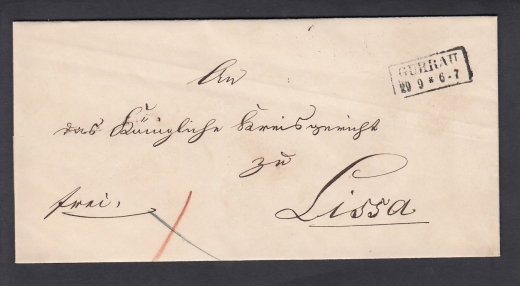 GUHRAU
29 9 * 6-7
An
das Königliche Kreisgericht
zu
Lissa
frei.